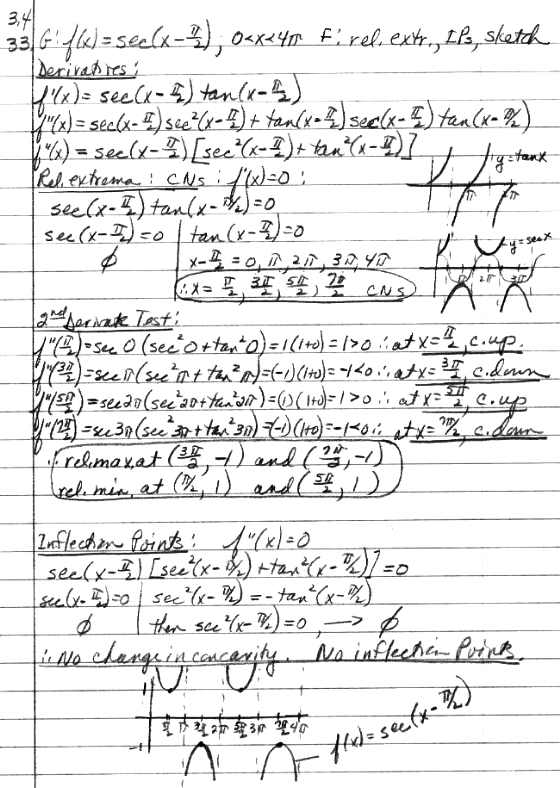 3,4
33, G: f(x) = sec(x - π/2), 0<x<4π F: rel. extr., IPs, sketch
Derivatives:
f'(x) = sec(x - π/2) tan(x - π/2)
f''(x) = sec(x - π/2) sec²(x - π/2) + tan(x - π/2) sec(x - π/2) tan(x - π/2)
f''(x) = sec(x - π/2) [sec²(x - π/2) + tan²(x - π/2)]
y = tan x
π
Rel. extrema: CNs: f'(x) = 0:
sec(x - π/2) tan(x - π/2) = 0
sec(x - π/2) = 0 | tan(x - π/2) = 0
y = sec x
∅ | x - π/2 = 0, π, 2π, 3π, 4π
π 2π 3π
∴ x = π/2, 3π/2, 5π/2, 7π/2 CNs
2nd Derivate Test:
f''(π/2) = sec 0 (sec²0 + tan²0) = 1(1+0) = 1 > 0 ∴ at x = π/2, c. up.
f''(3π/2) = sec π (sec²π + tan²π) = (-1)(1+0) = -1 < 0 ∴ at x = 3π/2, c. down
f''(5π/2) = sec 2π (sec²2π + tan²2π) = (1)(1+0) = 1 > 0 ∴ at x = 5π/2, c. up
f''(7π/2) = sec 3π (sec²3π + tan²3π) = (-1)(1+0) = -1 < 0 ∴ at x = 7π/2, c. down
∴ rel. max. at (3π/2, -1) and (7π/2, -1)
rel. min. at (π/2, 1) and (5π/2, 1)
Inflection Points: f''(x) = 0
sec(x - π/2) [sec²(x - π/2) + tan²(x - π/2)] = 0
sec(x - π/2) = 0 | sec²(x - π/2) = -tan²(x - π/2)
∅ | then sec²(x - π/2) = 0, → ∅
∴ No change in concavity. No inflection Points.
1
π/2 π 3π/2 2π 5π/2 3π 7π/2 4π
-1
f(x) = sec(x - π/2)